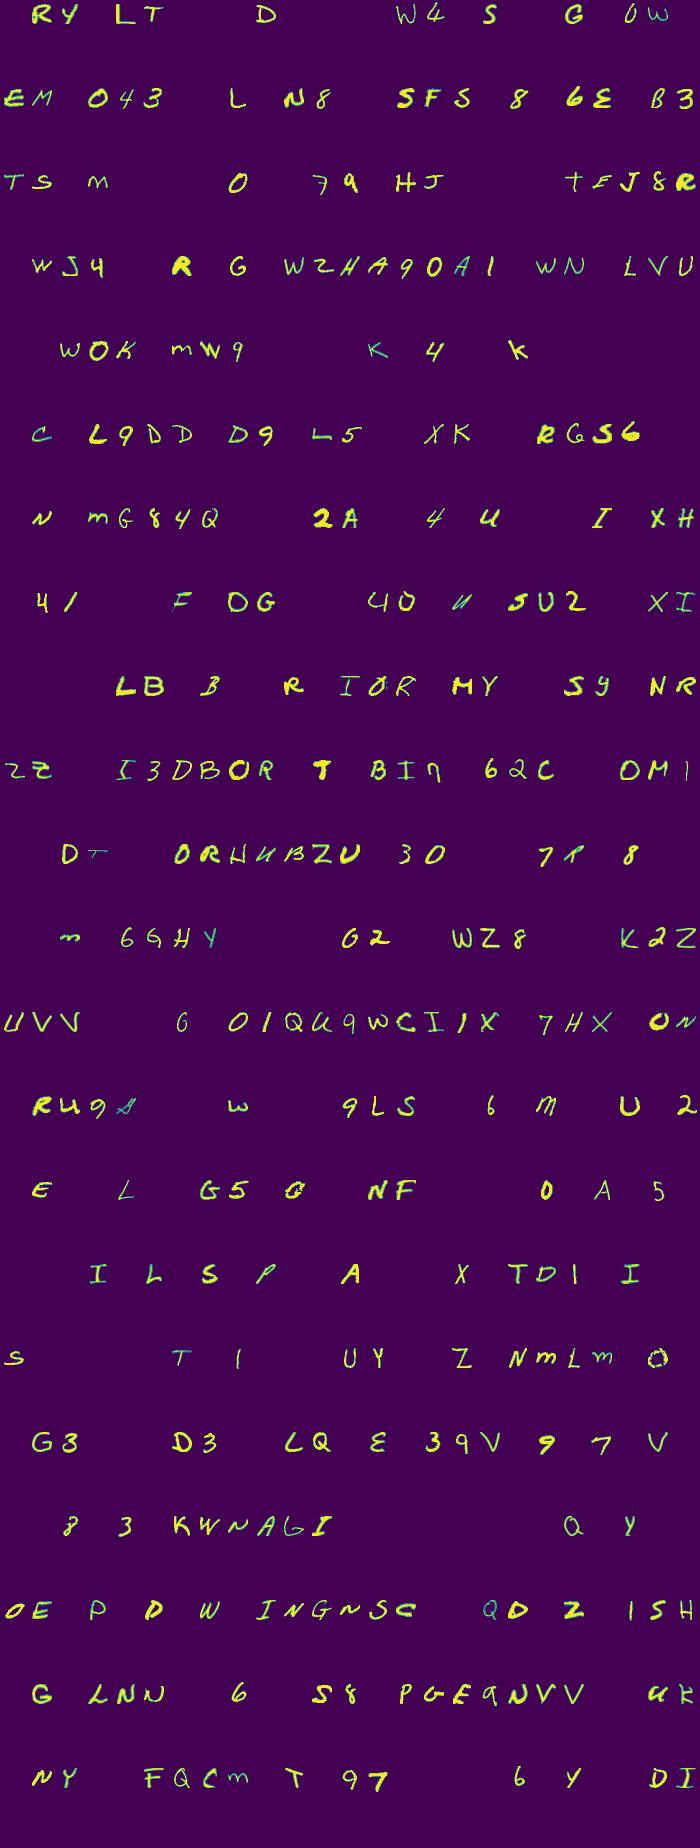 RY LT D W4 S G 0W
EM 043 L N8 SFS 8 6E B3
TS M 0 79 HJ TFJ8R
WJ4 R G WZHA90A1 WN LVU
WOK MW9 K 4 K
C L9DD D9 L5 XK RGS6
N MG84Q 2A 4 U I XH
41 F DG 40 U SU2 XI
LB B R IOR MY SY NR
ZZ I3DBOR T BI9 62C OM1
DT ORHUBZU 30 7R 8
M 6GHY G2 WZ8 K2Z
UVV 6 01QU9WCI1X 7HX ON
RU9A W 9LS 6 M U 2
E L G5 0 NF 0 A 5
I L S P A X TD1 I
S T 1 UY Z NMLM O
G3 D3 LQ E 39V 9 7 V
8 3 KWNAGI Q Y
OE P D W INGNSC QD Z 1SH
G LNN 6 S8 PGE9NVV UK
NY FQCM T 97 6 Y DI